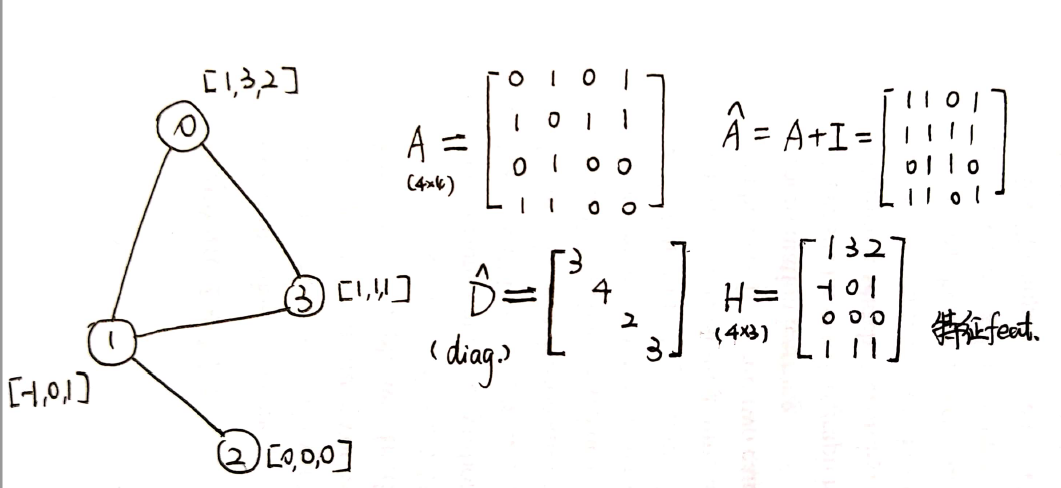 [1,3,2]
0
3 [1,1,1]
1
[-1,0,1]
2 [0,0,0]
A = [0 1 0 1
1 0 1 1
0 1 0 0
1 1 0 0]
(4×4)
Â = A+I = [1 1 0 1
1 1 1 1
0 1 1 0
1 1 0 1]
D̂ = [3
4
2
3]
(diag.)
H = [1 3 2
-1 0 1
0 0 0
1 1 1]
(4×3)
特征feat.